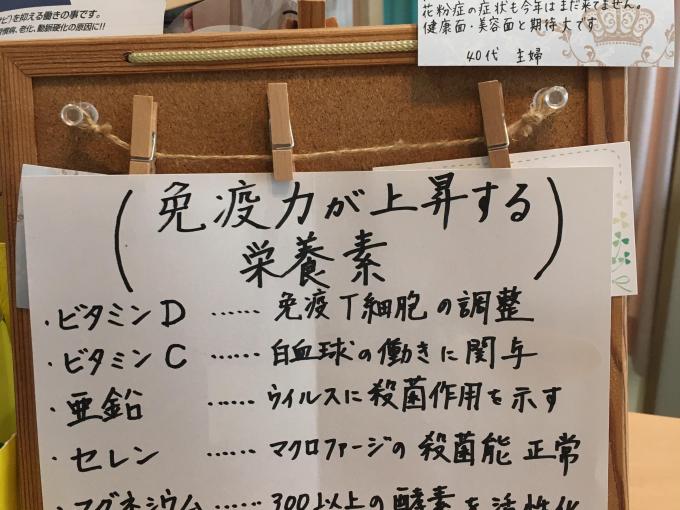 ビ)を抑える働きの事です。
慣病、老化、動脈硬化の原因に!!
花粉症の症状も今年はまだ来てません。
健康面・美容面と期待大です
40代 主婦
(免疫力が上昇する
栄養素)
・ビタミンD …… 免疫T細胞の調整
・ビタミンC …… 白血球の働きに関与
・亜鉛 …… ウイルスに殺菌作用を示す
・セレン …… マクロファージの殺菌能正常
・マグネシウム …… 300以上の酵素を活性化